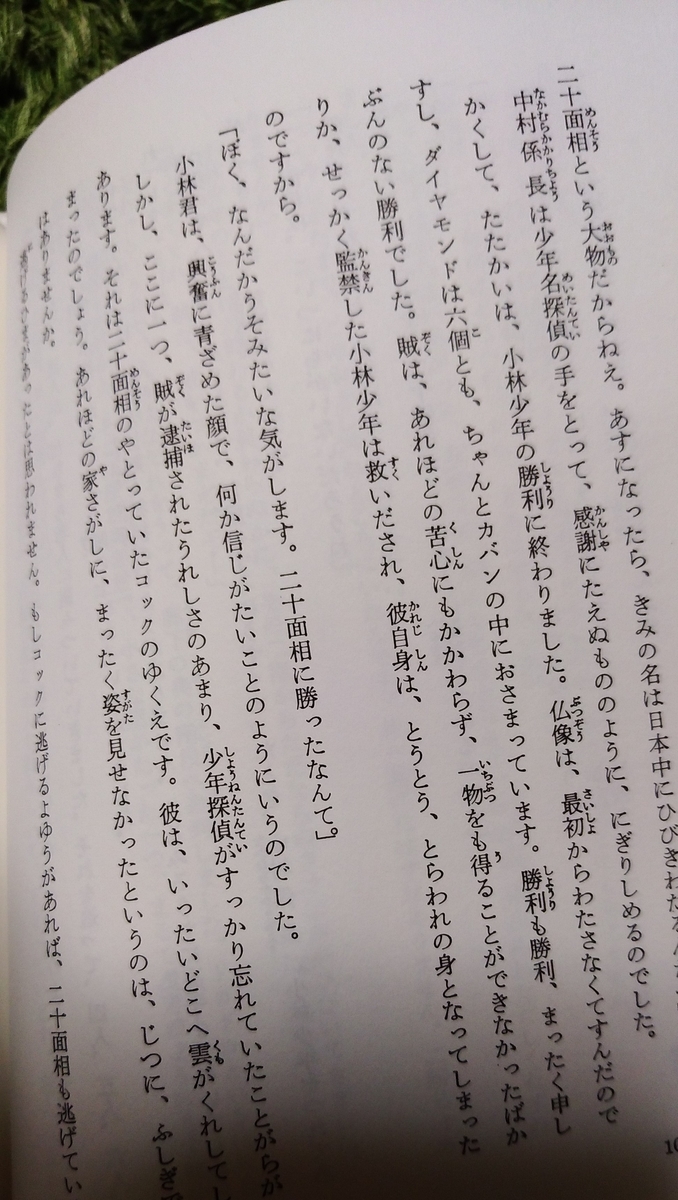 二十面相という大物だからねえ。あすになったら、きみの名は日本中にひびきわたる
中村係長は少年名探偵の手をとって、感謝にたえぬもののように、にぎりしめるのでした。
かくして、たたかいは、小林少年の勝利に終わりました。仏像は、最初からわたさなくてすんだので
すし、ダイヤモンドは六個とも、ちゃんとカバンの中におさまっています。勝利も勝利、まったく申し
ぶんのない勝利でした。賊は、あれほどの苦心にもかかわらず、一物をも得ることができなかったばか
りか、せっかく監禁した小林少年は救いだされ、彼自身は、とうとう、とらわれの身となってしまった
のですから。
「ぼく、なんだかうそみたいな気がします。二十面相に勝ったなんて。」
小林君は、興奮に青ざめた顔で、何か信じがたいことのようにいうのでした。
しかし、ここに一つ、賊が逮捕されたうれしさのあまり、少年探偵がすっかり忘れていたことがらが
あります。それは二十面相のやとっていたコックのゆくえです。彼は、いったいどこへ雲がくれしてし
まったのでしょう。あれほどの家さがしに、まったく姿を見せなかったというのは、じつに、ふしぎで
はありませんか。
逃げるひまがあったとは思われません。もしコックに逃げるよゆうがあれば、二十面相も逃げてい